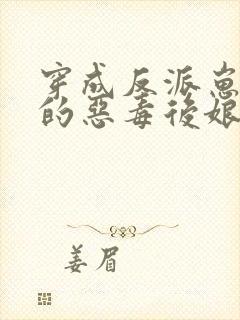 穿成反派崽
的惡毒後娘
姜眉